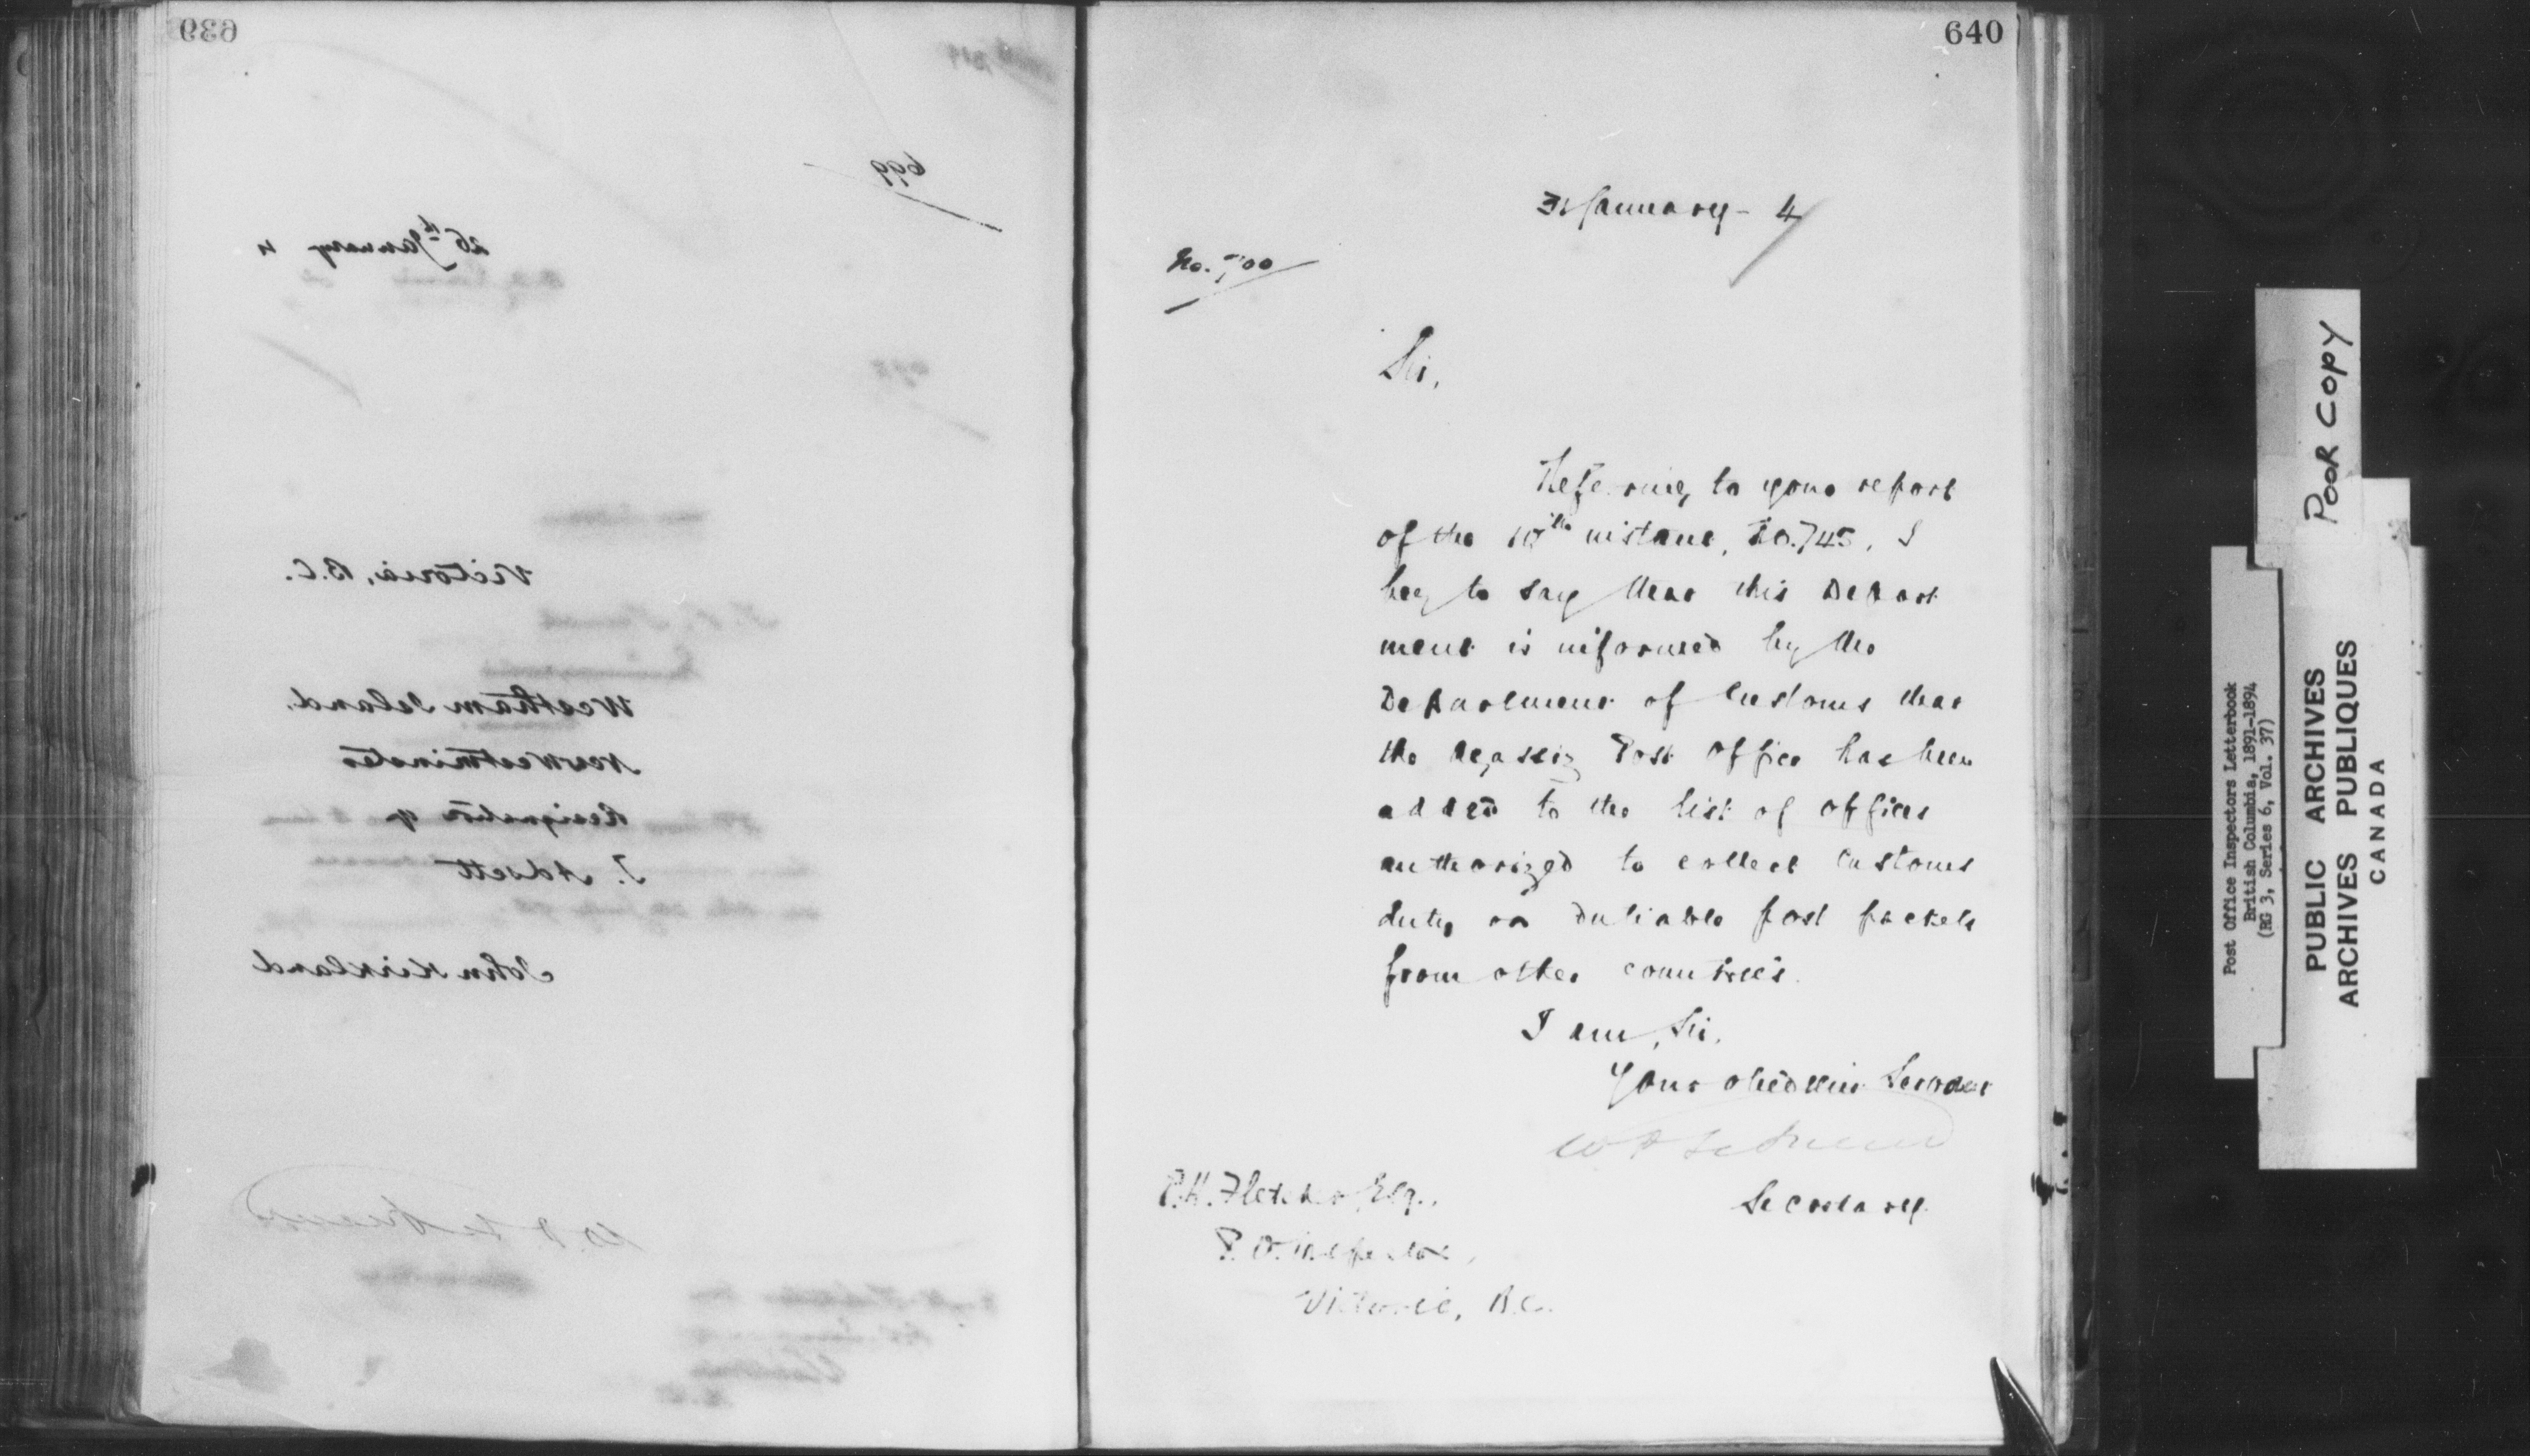 639
699
26th January 4
Victoria, B.C.
Westham Island.
New Westminster
Resignation of
J. Adsett
John Kirkland
640
31 January - 4
No. 700
Sir,
Referring to your report
of the 10th instant, No. 745, I
beg to say that this Depart
ment is informed by the
Department of Customs that
the Agassiz Post Office has been
added to the list of offices
authorized to collect Customs
duty on dutiable post packets
from other countries.
I am, Sir,
Your obedient Servant
Secretary
P.H. Fletcher Esq.,
P.O. Inspector,
Victoria, B.C.
POOR COPY
Post Office Inspectors Letterbook
British Columbia, 1891-1894
(RG 3, Series 6, Vol. 37)
PUBLIC ARCHIVES
ARCHIVES PUBLIQUES
CANADA